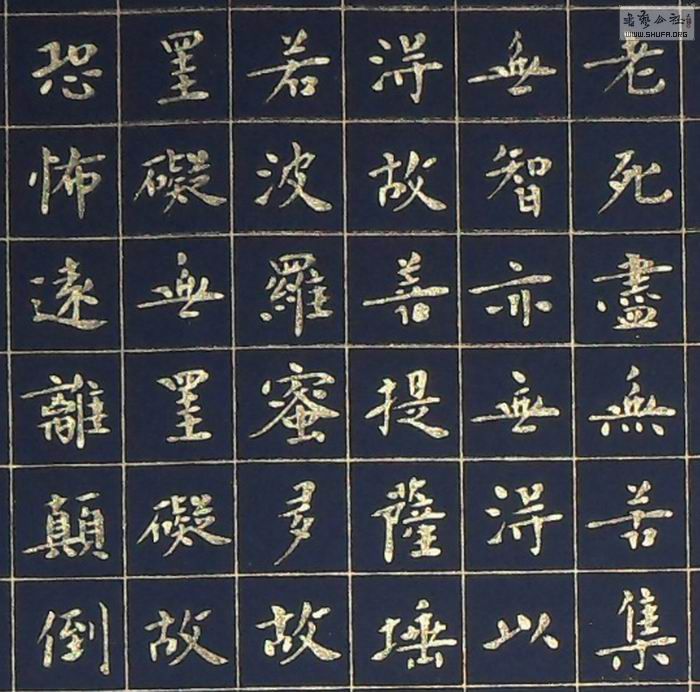 老死盡無苦集
無智亦無得以
得故菩提薩埵
若波羅蜜多故
罣礙無罣礙故
恐怖遠離顛倒
书艺公社
WWW.SHUFA.ORG